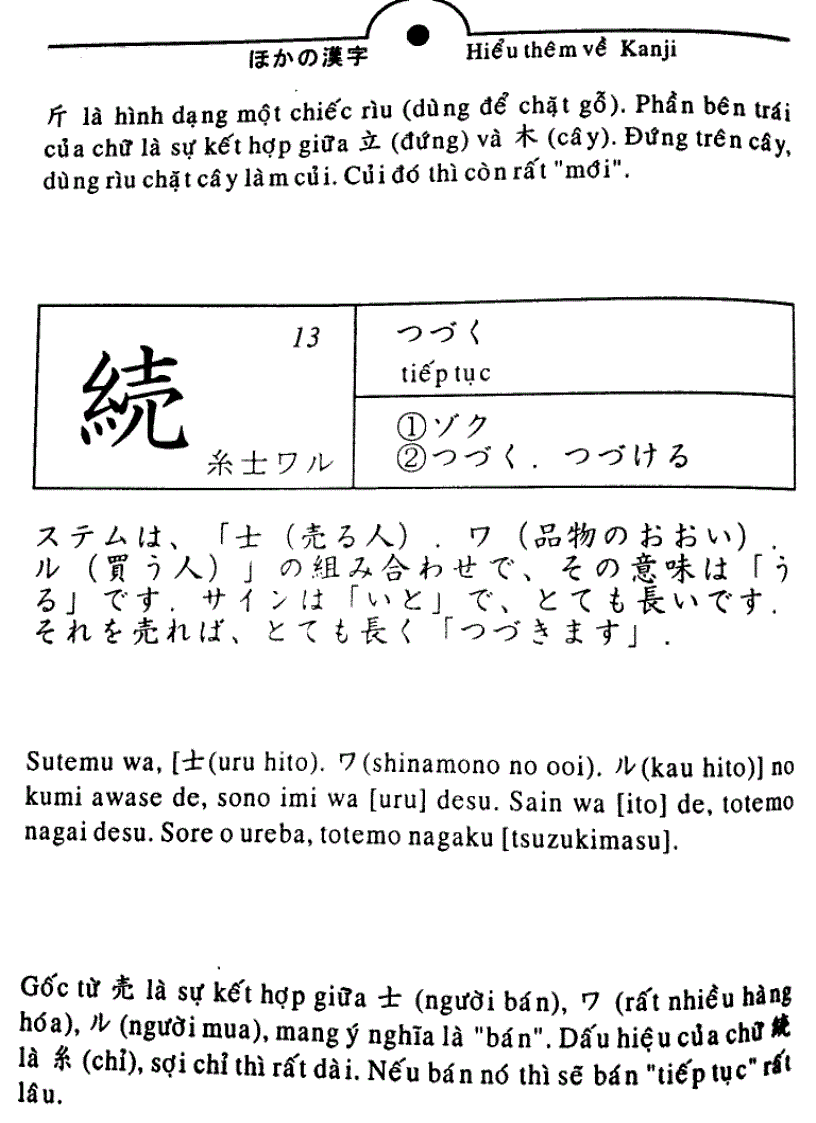 ほかの漢字 Hiểu thêm về Kanji
斤 là hình dạng một chiếc rìu (dùng để chặt gỗ). Phần bên trái
của chữ là sự kết hợp giữa 立 (đứng) và 木 (cây). Đứng trên cây,
dùng rìu chặt cây làm củi. Củi đó thì còn rất "mới".
続
13
糸士ワル
つづく
tiếp tục
①ゾク
②つづく. つづける
ステムは、「士（売る人）. ワ（品物のおおい）.
ル（買う人）」の組み合わせで、その意味は「う
る」です. サインは「いと」で、とても長いです.
それを売れば、とても長く「つづきます」.
Sutemu wa, [士(uru hito). ワ(shinamono no ooi). ル(kau hito)] no
kumi awase de, sono imi wa [uru] desu. Sain wa [ito] de, totemo
nagai desu. Sore o ureba, totemo nagaku [tsuzukimasu].
Gốc từ 売 là sự kết hợp giữa 士 (người bán), ワ (rất nhiều hàng
hóa), ル (người mua), mang ý nghĩa là "bán". Dấu hiệu của chữ 続
là 糸 (chỉ), sợi chỉ thì rất dài. Nếu bán nó thì sẽ bán "tiếp tục" rất
lâu.